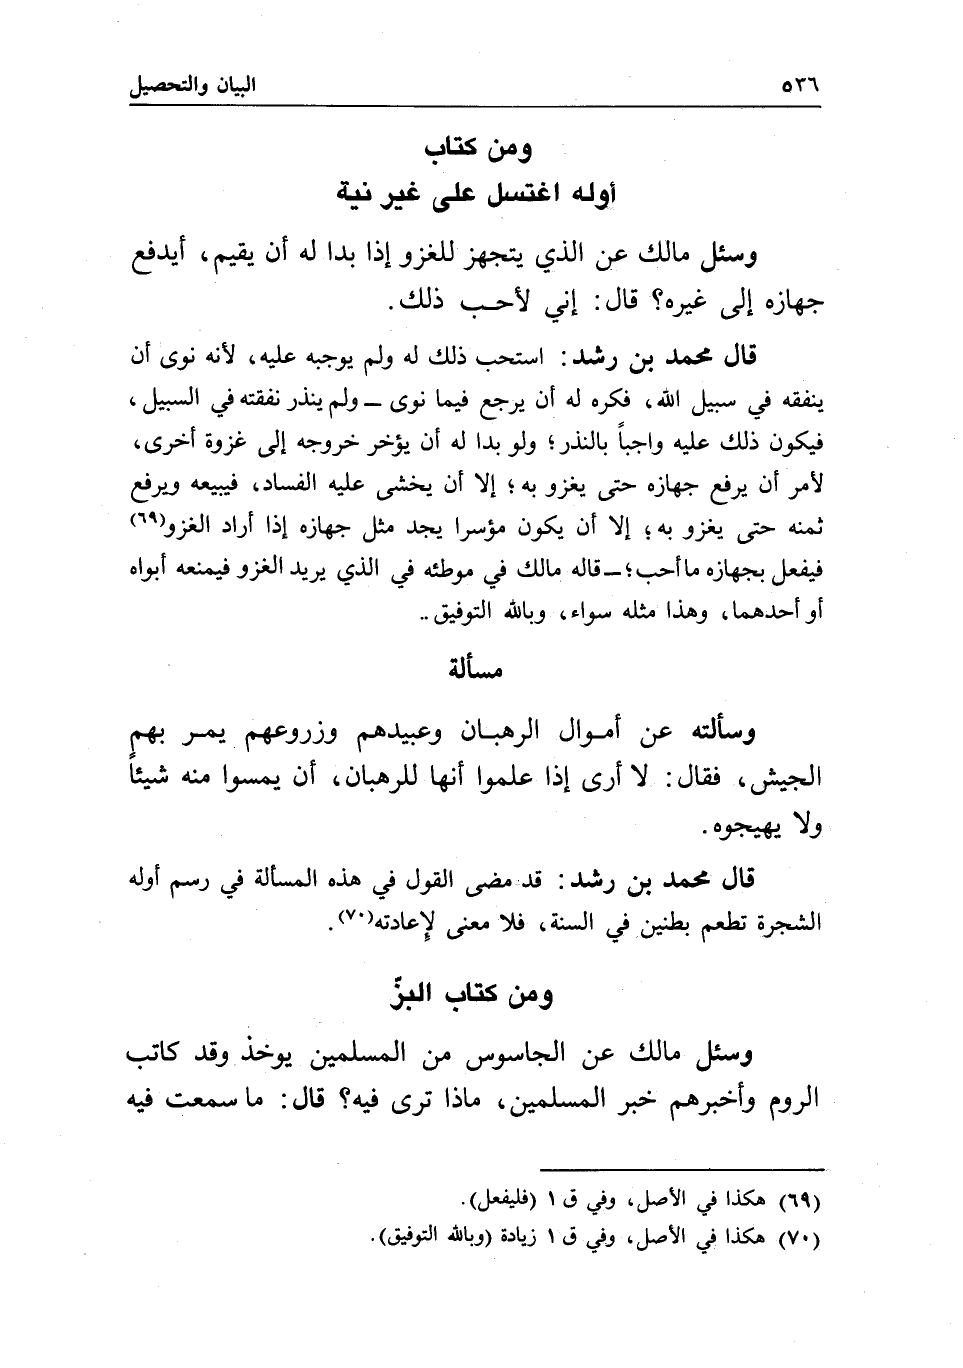 ٥٣٦
البيان والتحصيل
ومن كتاب
أوله اغتسل على غير نية
وسئل مالك عن الذي يتجهز للغزو إذا بدا له أن يقيم، أيدفع
جهازه إلى غيره؟ قال: إني لأحب ذلك.
قال محمد بن رشد: استحب ذلك له ولم يوجبه عليه، لأنه نوى أن
ينفقه في سبيل الله، فكره له أن يرجع فيما نوى ــ ولم ينذر نفقته في السبيل،
فيكون ذلك عليه واجباً بالنذر؛ ولو بدا له أن يؤخر خروجه إلى غزوة أخرى،
لأمر أن يرفع جهازه حتى يغزو به؛ إلا أن يخشى عليه الفساد، فيبيعه ويرفع
ثمنه حتى يغزو به؛ إلا أن يكون مؤسرا يجد مثل جهازه إذا أراد الغزو(٦٩)
فيفعل بجهازه ما أحب؛ ــ قاله مالك في موطئه في الذي يريد الغزو فيمنعه أبواه
أو أحدهما، وهذا مثله سواء، وبالله التوفيق..
مسألة
وسألته عن أمـوال الرهبـان وعبيدهم وزروعهم يمـر بهم
الجيش، فقال: لا أرى إذا علموا أنها للرهبان، أن يمسوا منه شيئاً
ولا يهيجوه.
قال محمد بن رشد: قد مضى القول في هذه المسألة في رسم أوله
الشجرة تطعم بطنين في السنة، فلا معنى لإعادته(٧٠).
ومن كتاب البزّ
وسئل مالك عن الجاسوس من المسلمين يوخذ وقد كاتب
الروم وأخبرهم خبر المسلمين، ماذا ترى فيه؟ قال: ما سمعت فيه
(٦٩) هكذا في الأصل، وفي ق ١ (فليفعل).
(٧٠) هكذا في الأصل، وفي ق ١ زيادة (وبالله التوفيق).